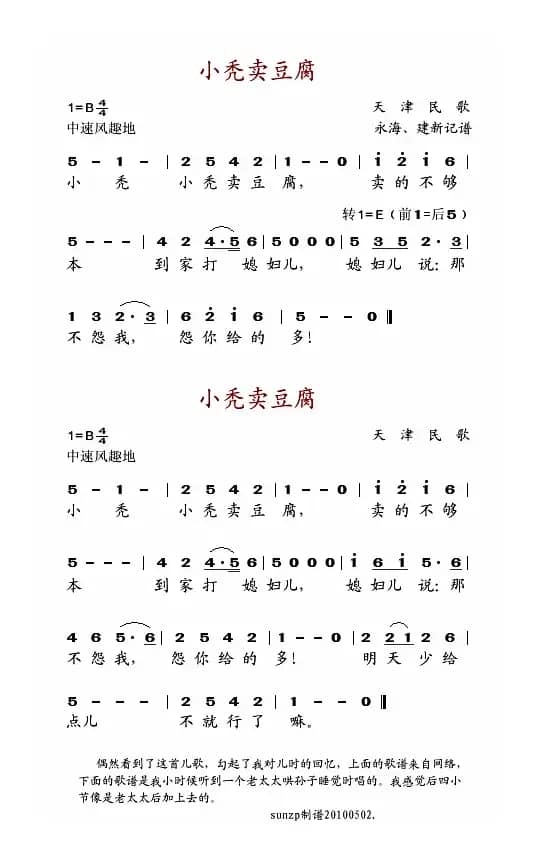 小秃卖豆腐
1=B 4/4 天津民歌
中速风趣地 永海、建新记谱
5 - 1 - | 2 5 4 2 | 1 - - 0 | i̇ 2̇ i̇ 6 |
小 秃 小秃卖豆腐, 卖的不够
转1=E(前1=后5)
5 - - - | 4 2 4·5 6 | 5 0 0 0 | 5 3 5 2·3 |
本 到家打 媳妇儿, 媳妇儿 说:那
1 3 2·3 | 6 2̇ i̇ 6 | 5 - - 0 ‖
不怨我, 怨你给的 多!
小秃卖豆腐
1=B 4/4 天津民歌
中速风趣地
5 - 1 - | 2 5 4 2 | 1 - - 0 | i̇ 2̇ i̇ 6 |
小 秃 小秃卖豆腐, 卖的不够
5 - - - | 4 2 4·5 6 | 5 0 0 0 | i̇ 6 i̇ 5·6 |
本 到家打 媳妇儿, 媳妇儿 说:那
4 6 5·6 | 2 5 4 2 | 1 - - 0 | 2 2 1 2 6 |
不怨我, 怨你给的 多! 明天少给
5 - - - | 2 5 4 2 | 1 - - 0 ‖
点儿 不就行了 嘛。
偶然看到了这首儿歌,勾起了我对儿时的回忆,上面的歌谱来自网络,
下面的歌谱是我小时候听到一个老太太哄孙子睡觉时唱的。我感觉后四小
节像是老太太后加上去的。
sunzp制谱20100502.